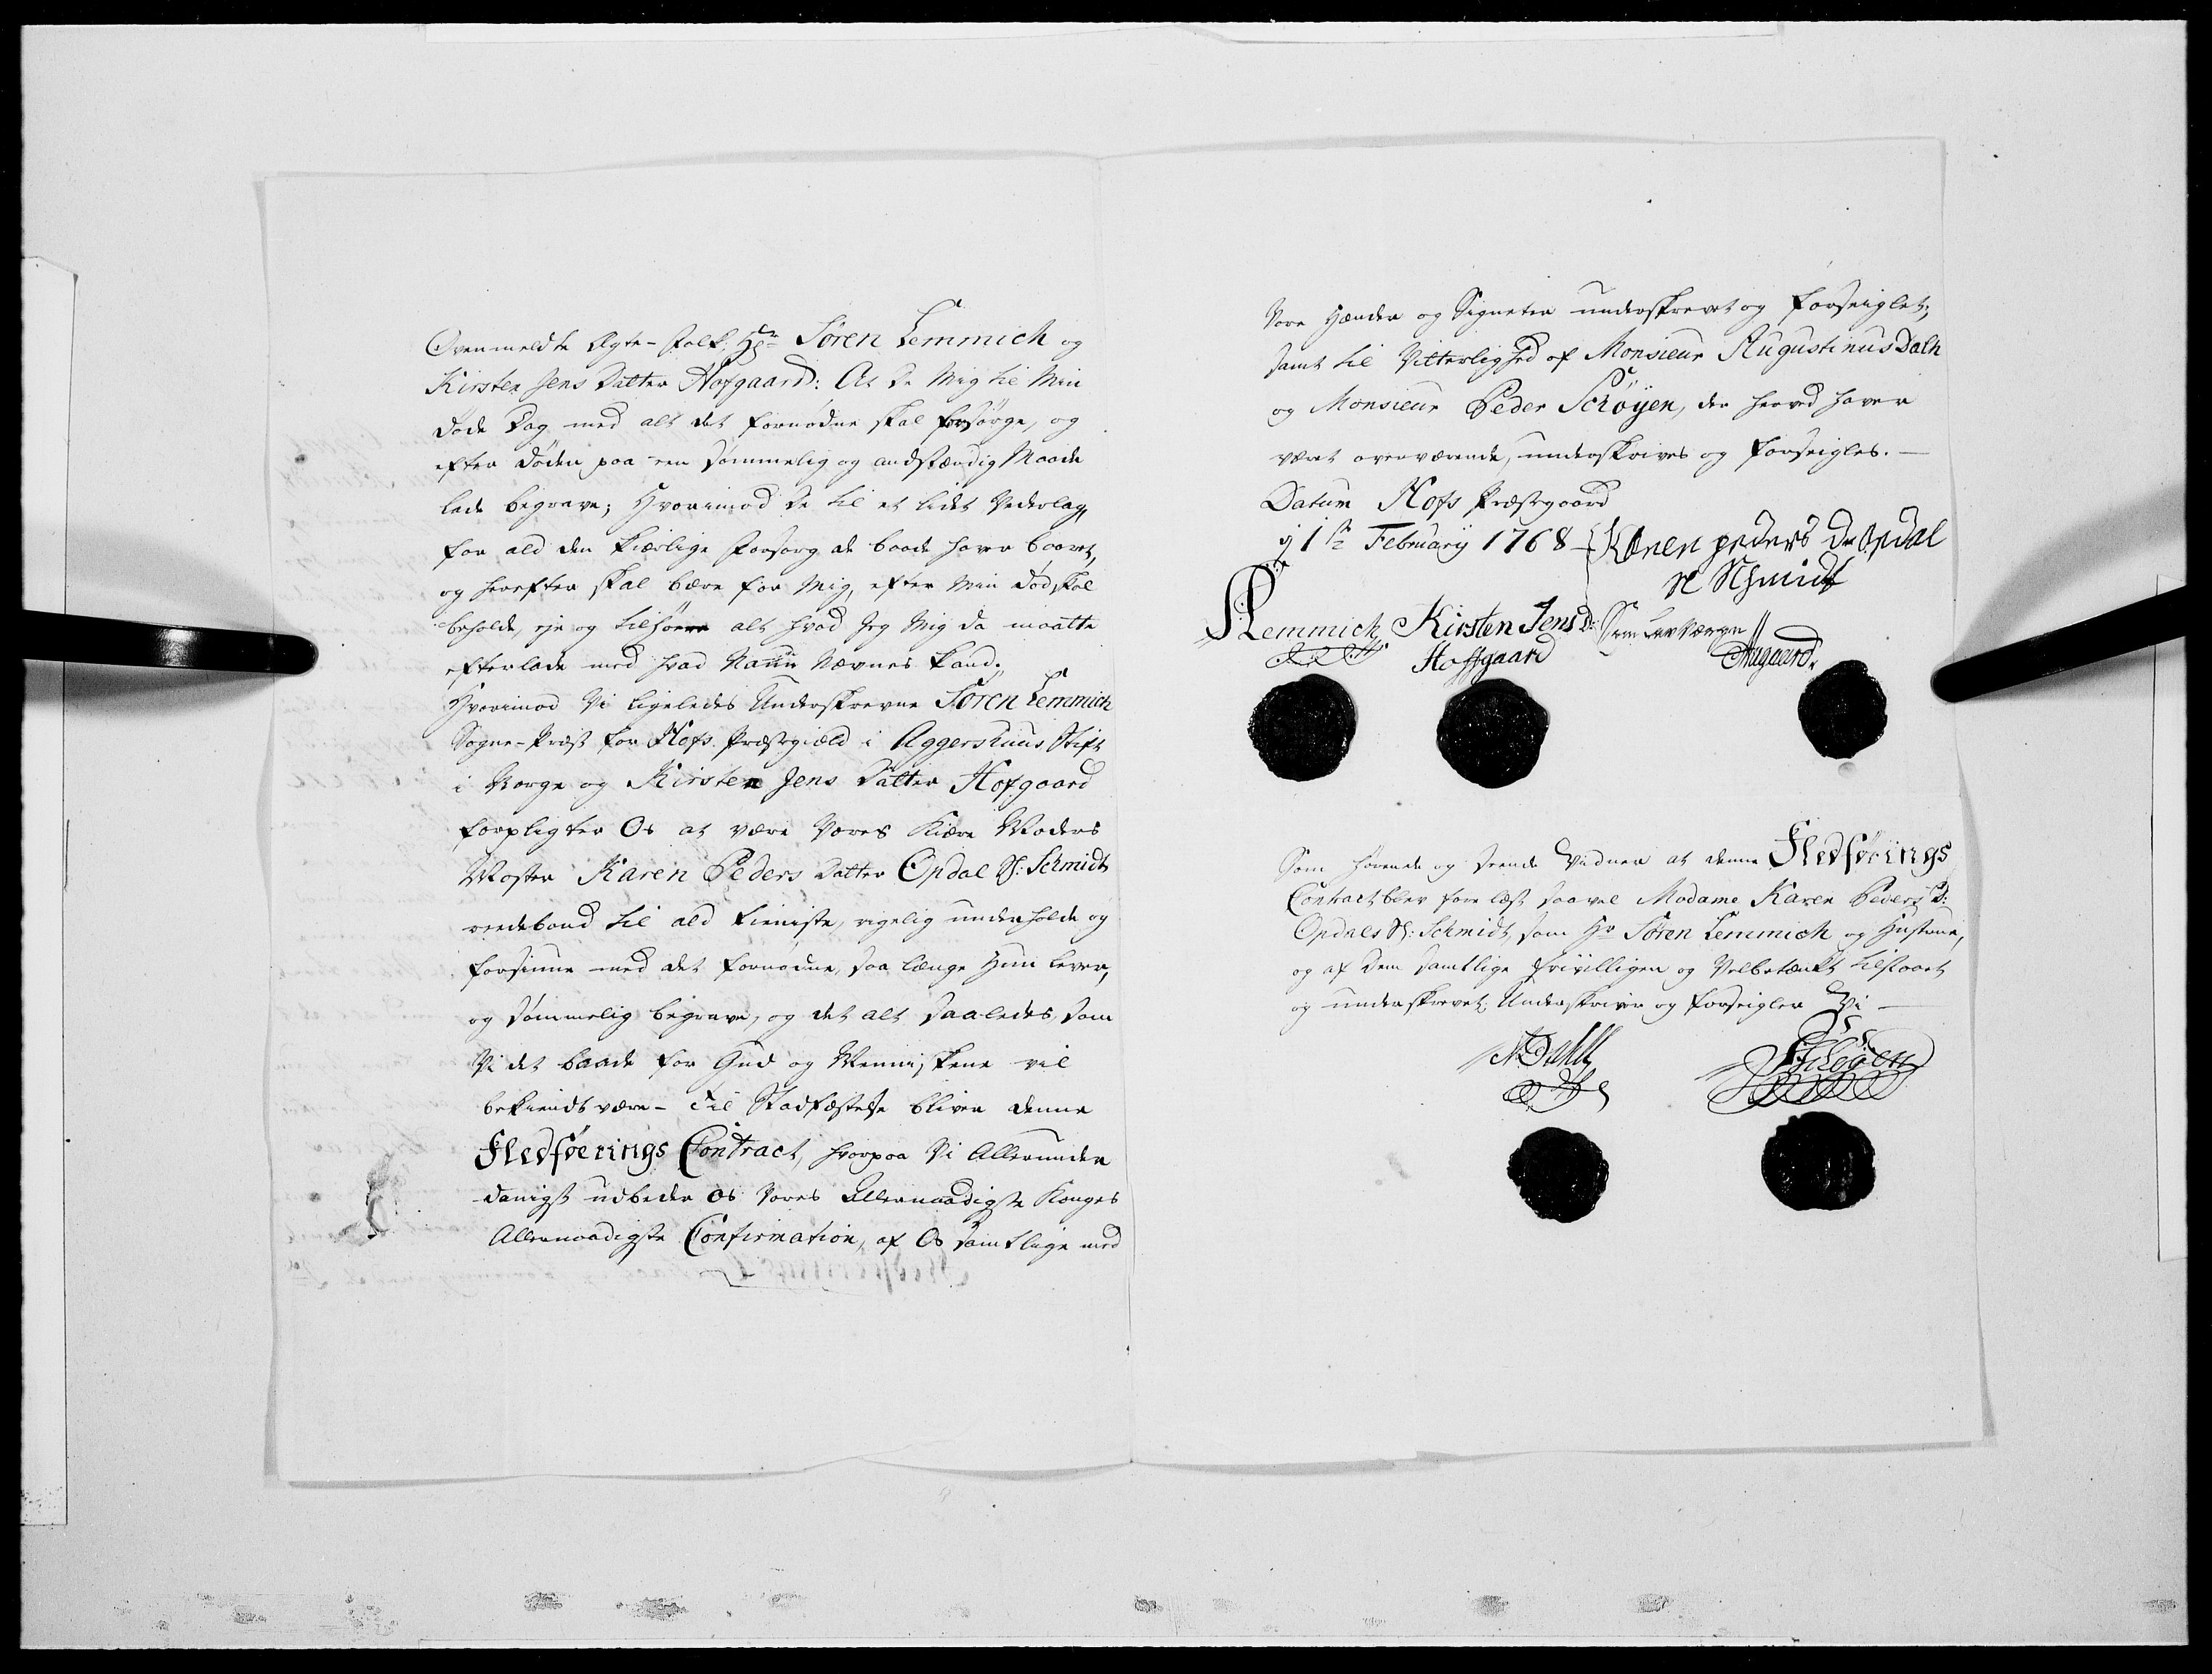 Ovenmeldte Ægte-Folk: Hr. Søren Lemmich og
Kirsten Jens Datter Hofgaard: At de Mig til Min
Døde Dag med alt det fornødne skal forsørge, og
efter Døden paa een sømmelig og andstændig Maade
lade begrave; Hvorimod De til et lidet Vederlag,
for ald den kierlige Forsorg de baade haver baaret,
og herefter skal bære for Mig, efter Min Død skal
beholde, eje og tilhøre alt hvad Jeg Mig da maatte
efterlade med hvad Nafn Nævnes kand;
Hvorimod Vi ligeledes Underskrevne Søren Lemmich
Sogne-Præst for Hofs Præstegield i Aggershuus Stift
i Norge og Kirsten Jens Datter Hofgaard
forpligter Os at være Vores Kiære Moders
Moster Karen Peders Datter Opdal Sl: Schmidts
reedebond til ald tieniste, rigelig underholde og
forsiune med det fornødne, saa længe Hun lever,
og sømmelig begrave, og det alt saaledes, som
Vi det baade for Gud og Menniskene vil
bekiendt være - Til Stadfæstelse bliver denne
Fledføerings Contract, hvorpaa Vi Allerunder
danigst udbeder Os Vores Allernaadigste Konges
Allernaadigste Confirmation, af Os samtlige med
Vore Hænder og Signeter underskrevet og forseiglet;
samt til Vitterlighed af Monsieur Augustinus Dalh
og Monsieur Peder Schøyen, der herved haver
været overværende, underskrives og forseigles. —
Datum Hofs Præstegaard
d 1ste February 1768 — Karen peders Dr Opdal
Sl Schmidt
SLemmich Kirsten Jens D: Som Lav Værge
Hoffgaard Aagaard.
Som hørende og seende Vidner at denne Fledførings
Contract blev forelæst saavel Madame Karen Peders D:
Opdals Sl: Schmidt, som Hr Søren Lemmich og Hustrue,
og af Dem samtlige frivilligen og Velbetænkt tilstaaet
og underskrevet; Underskriver og forseigler Vi —
ADahll PSchøyen